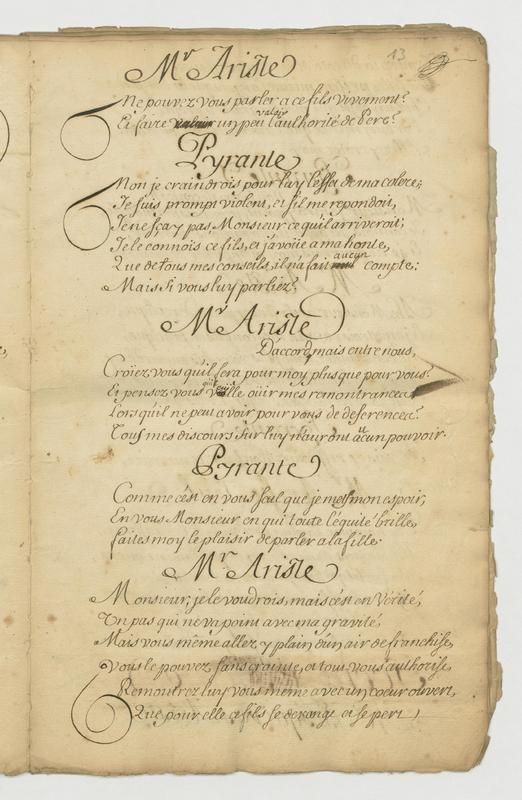 13
Mr Ariste
Ne pouvez vous parler a ce fils vivement?
Et faire valoir un peu l'authorité de Pere?
Pyrante
Non je craindrois pour luy l'effet de ma colere;
Je suis prompt violent, et s'il me repondoit,
Je ne sçay pas Monsieur ce qu'il arriveroit;
Je le connois ce fils, et j'avoüe a ma honte,
Que de tous mes conseils, il n'a fait aucun compte;
Mais si vous luy parliez?
Mr Ariste
D'accord, mais entre nous,
Croïez vous qu'il fera pour moy plus que pour vous?
Et pensez vous qu'il veuille oüir mes remontrances
Lors qu'il ne peut avoir pour vous de deferences?
Tous mes discours sur luy n'auront aucun pouvoir.
Pyrante
Comme c'est en vous seul que je mets mon espoir,
En vous Monsieur en qui toute l'équité brille,
Faites moy le plaisir de parler a la fille.
Mr Ariste
Monsieur, je le voudrois, mais c'est en Verité,
Un pas qui ne va point avec ma gravité,
Mais vous même allez y plain d'un air de franchise,
Vous le pouvez sans crainte, et tout vous authorise,
Remontrez luy vous même avec un coeur ouvert,
Que pour elle ce fils se derange et se pert,